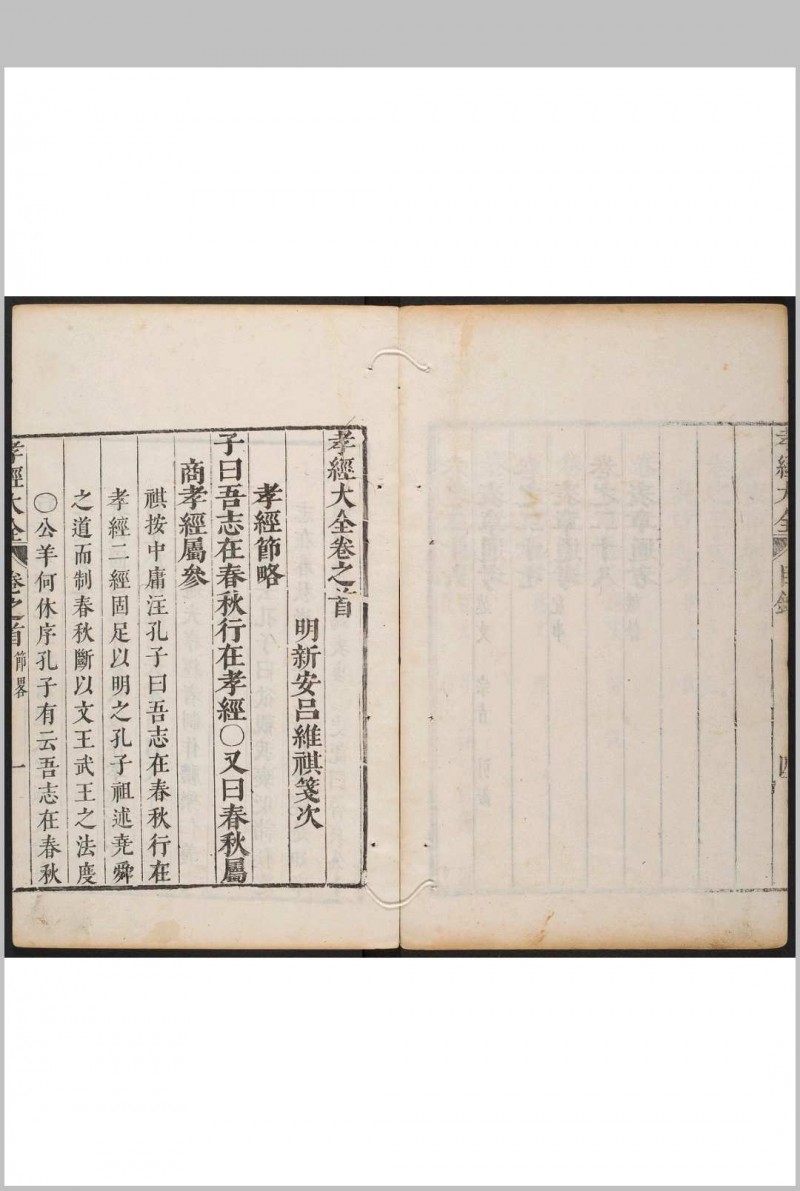 孝經大全
目錄
四
孝經大全卷之首
明新安呂維祺箋次
孝經節略
子曰吾志在春秋行在孝經〇又曰春秋屬
商孝經屬參
祺按中庸注孔子曰吾志在春秋行在
孝經二經固足以明之孔子祖述堯舜
之道而制春秋斷以文王武王之法度
〇公羊何休序孔子有云吾志在春秋
孝經大全
卷之首
節畧
一